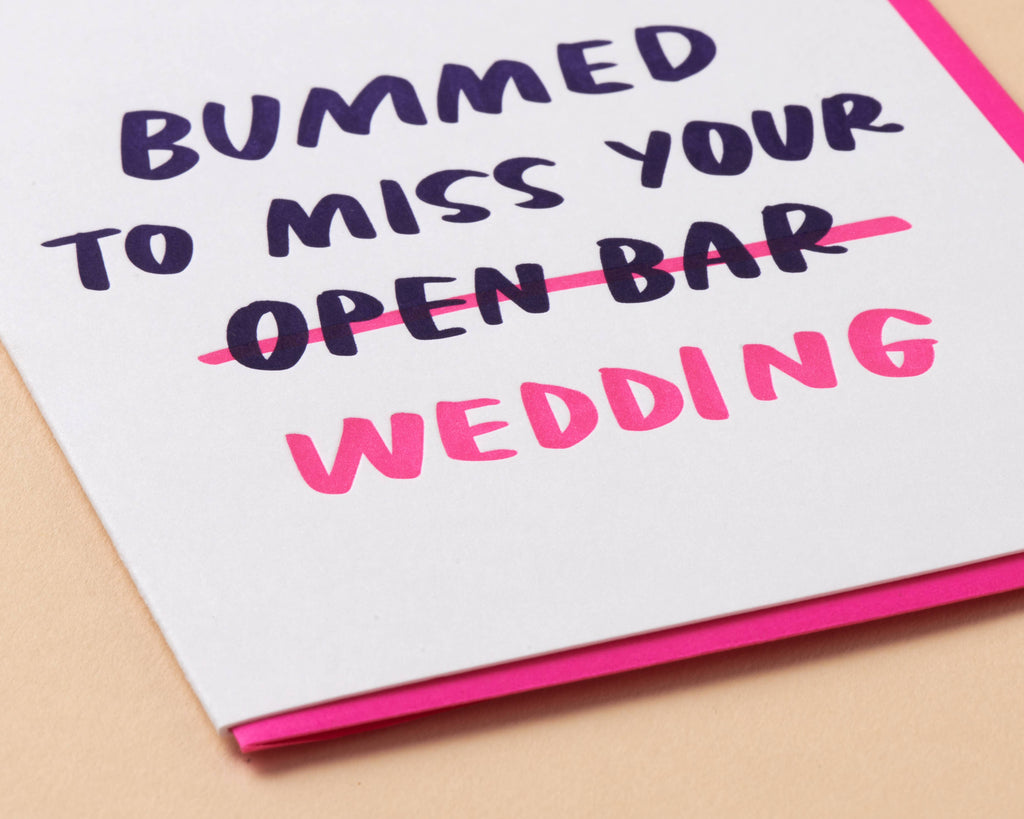 BUMMED
TO MISS YOUR
OPEN BAR
WEDDING